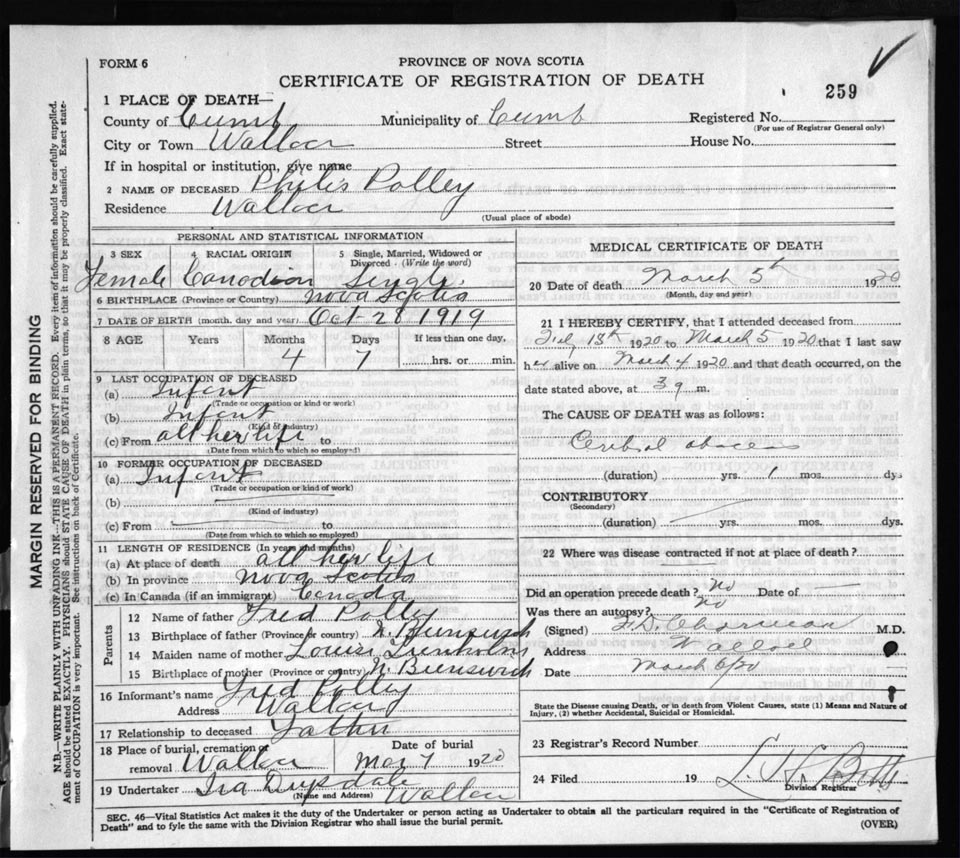 FORM 6
PROVINCE OF NOVA SCOTIA
CERTIFICATE OF REGISTRATION OF DEATH
259
1 PLACE OF DEATH—
County of Cumb Municipality of Cumb Registered No.
(For use of Registrar General only)
City or Town Wallace Street House No.
If in hospital or institution, give name
2 NAME OF DECEASED Philis Polley
Residence Wallace
(Usual place of abode)
PERSONAL AND STATISTICAL INFORMATION
3 SEX 4 RACIAL ORIGIN 5 Single, Married, Widowed or Divorced (Write the word)
Female Canadian Single
6 BIRTHPLACE (Province or Country) Nova Scotia
7 DATE OF BIRTH (month, day and year) Oct 28 1919
8 AGE Years Months Days If less than one day,
4 7 hrs. or min.
9 LAST OCCUPATION OF DECEASED
(a) Infent
(Trade or occupation or kind of work)
(b) Infent
(Kind of industry)
(c) From all her life to
(Date from which to which so employed)
10 FORMER OCCUPATION OF DECEASED
(a) Infent
(Trade or occupation or kind of work)
(b)
(Kind of industry)
(c) From to
(Date from which to which so employed)
11 LENGTH OF RESIDENCE (In years and months)
(a) At place of death all her life
(b) In province Nova Scotia
(c) In Canada (if an immigrant) Canada
Parents
12 Name of father Fred Polley
13 Birthplace of father (Province or country) N. Brunswick
14 Maiden name of mother Louise
15 Birthplace of mother (Province or country) N. Brunswick
16 Informant's name Fred Polley
Address Wallace
17 Relationship to deceased Father
18 Place of burial, cremation or removal Wallace Date of burial Mar 7 1920
19 Undertaker Ira Drysdale Wallace
(Name and Address)
MEDICAL CERTIFICATE OF DEATH
20 Date of death March 5th 1920
(Month, day and year)
21 I HEREBY CERTIFY, that I attended deceased from
13th 1920 to March 5 1920 that I last saw
her alive on March 4 1920 and that death occurred, on the
date stated above, at 3 a. m.
The CAUSE OF DEATH was as follows:
Cerebral abscess
(duration) yrs. 1 mos. dys
CONTRIBUTORY
(Secondary)
(duration) yrs. mos. dys.
22 Where was disease contracted if not at place of death?
Did an operation precede death? No Date of
Was there an autopsy? No
(Signed) M.D.
Address Wallace
Date March 6/20
State the Disease causing Death, or in death from Violent Causes, state (1) Means and Nature of
Injury, (2) whether Accidental, Suicidal or Homicidal.
23 Registrar's Record Number
24 Filed 19
Division Registrar
SEC. 46—Vital Statistics Act makes it the duty of the Undertaker or person acting as Undertaker to obtain all the particulars required in the "Certificate of Registration of
Death" and to fyle the same with the Division Registrar who shall issue the burial permit.
(OVER)
MARGIN RESERVED FOR BINDING
N.B.—WRITE PLAINLY WITH UNFADING INK—THIS IS A PERMANENT RECORD. Every item of information should be carefully supplied.
AGE should be stated EXACTLY. PHYSICIANS should STATE CAUSE OF DEATH in plain terms, so that it may be properly classified. Exact state-
ment of OCCUPATION is very important. See instructions on back of Certificate.